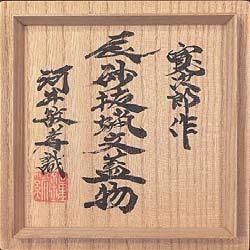 寛次郎作
辰砂抜蝋文蓋物
河井敏孝識